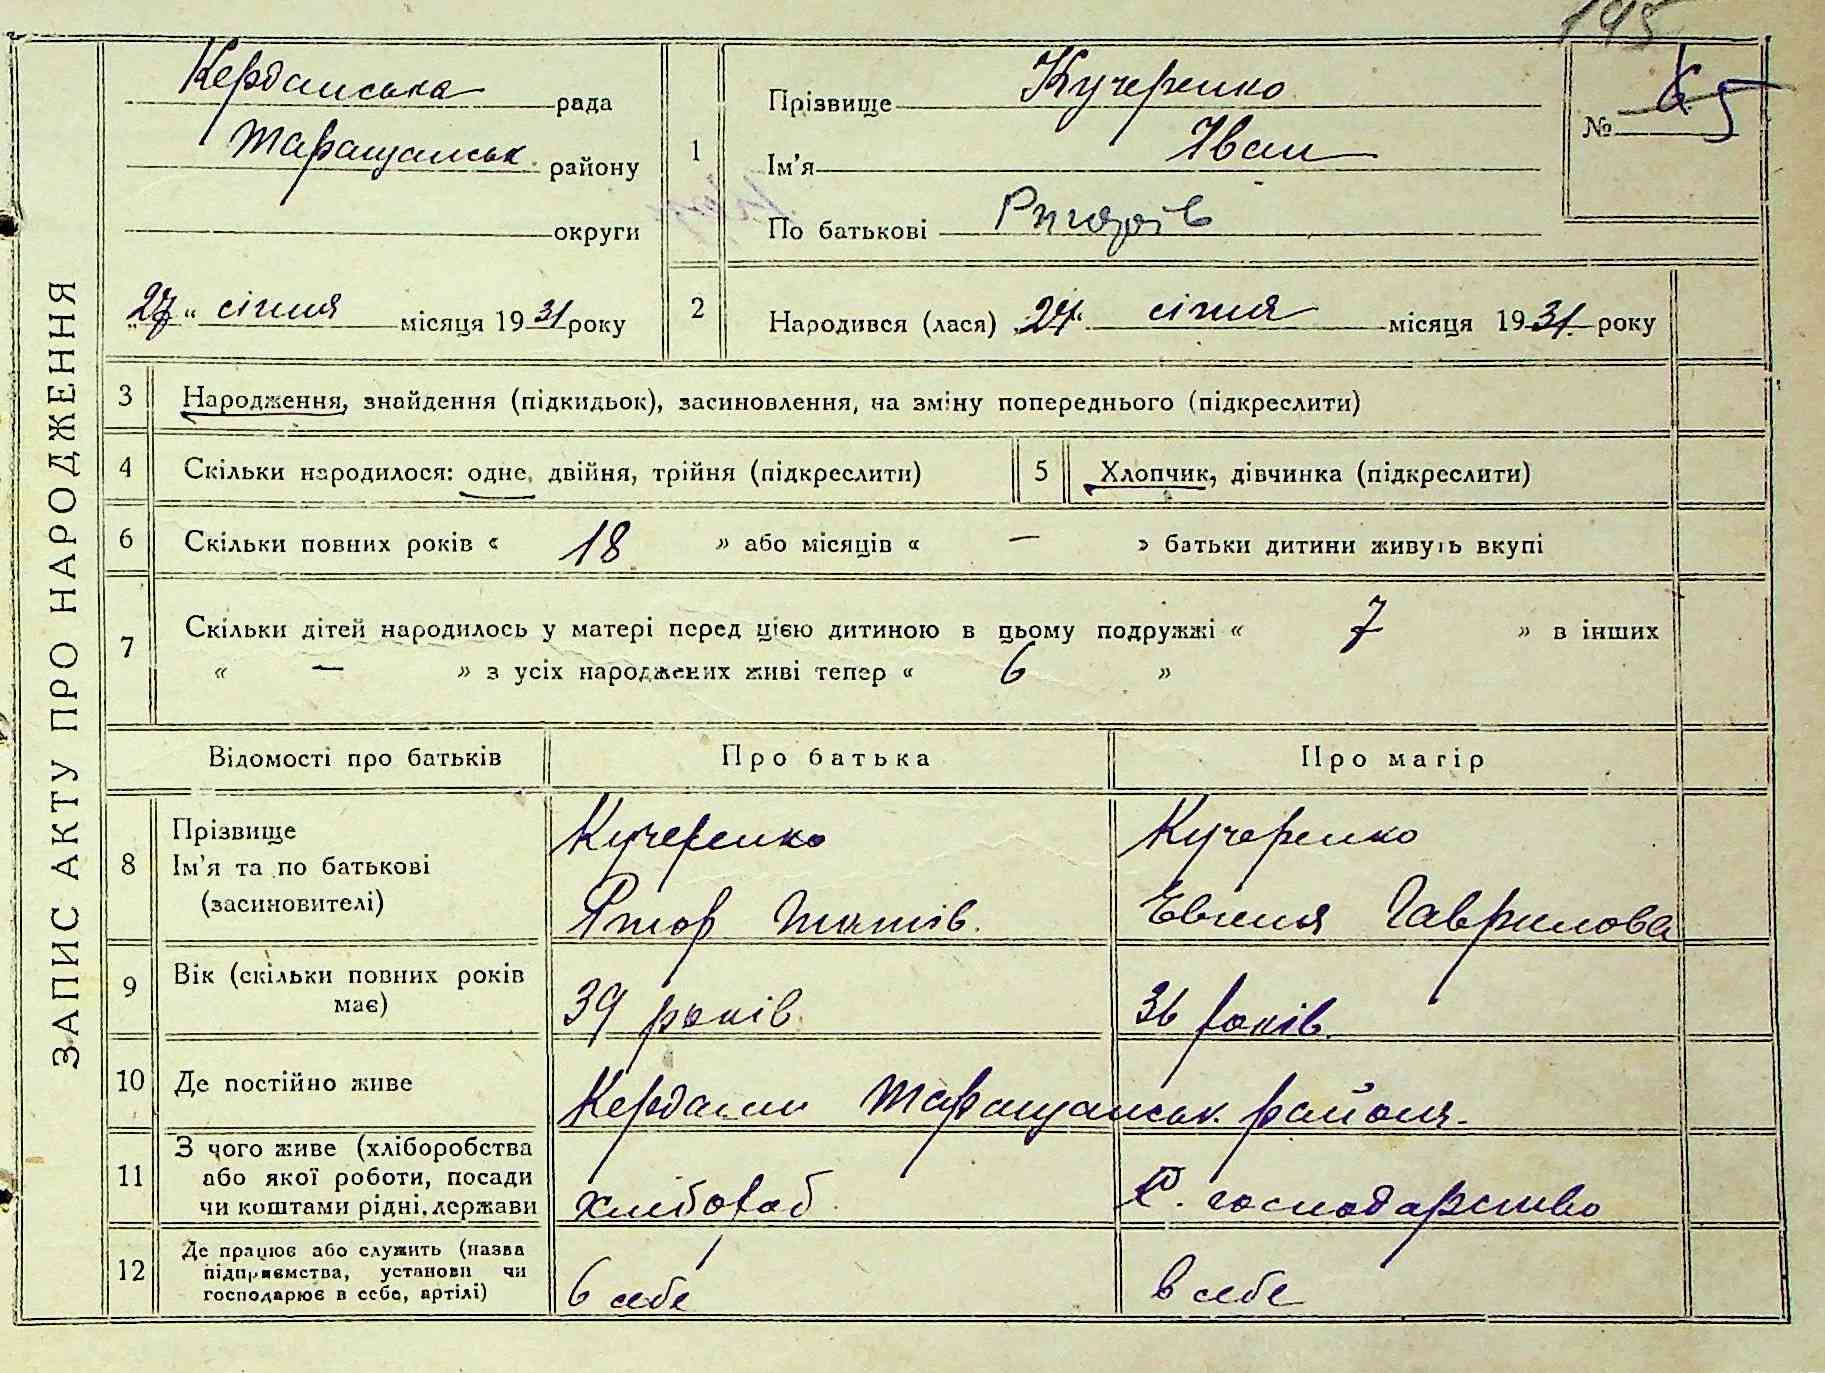 195
ЗАПИС АКТУ ПРО НАРОДЖЕННЯ
Керданська рада
Таращанськ. району
округи
27 " січня місяця 1931 року
1
Прізвище Кучеренко
Ім'я Іван
По батькові
№ 65
2
Народився (лася) 27 " січня місяця 1931 року
3 Народження, знайдення (підкидьок), засиновлення, на зміну попереднього (підкреслити)
4 Скільки народилося: одне, двійня, трійня (підкреслити) 5 Хлопчик, дівчинка (підкреслити)
6 Скільки повних років « 18 » або місяців « — » батьки дитини живуть вкупі
7 Скільки дітей народилось у матері перед цією дитиною в цьому подружжі « 7 » в інших
« — » з усіх народжених живі тепер « 6 »
Відомості про батьків Про батька Про матір
8 Прізвище
Ім'я та по батькові
(засиновителі)
Кучеренко
Кучеренко
Євгенія Гаврилова
9 Вік (скільки повних років
має)
39 років
36 років.
10 Де постійно живе Кердани Таращанськ. района.
11 З чого живе (хліборобства
або якої роботи, посади
чи коштами рідні, держави
хлібороб
д. господарство
12 Де працює або служить (назва
підприємства, установи чи
господарює в себе, артілі)
в себе
в себе